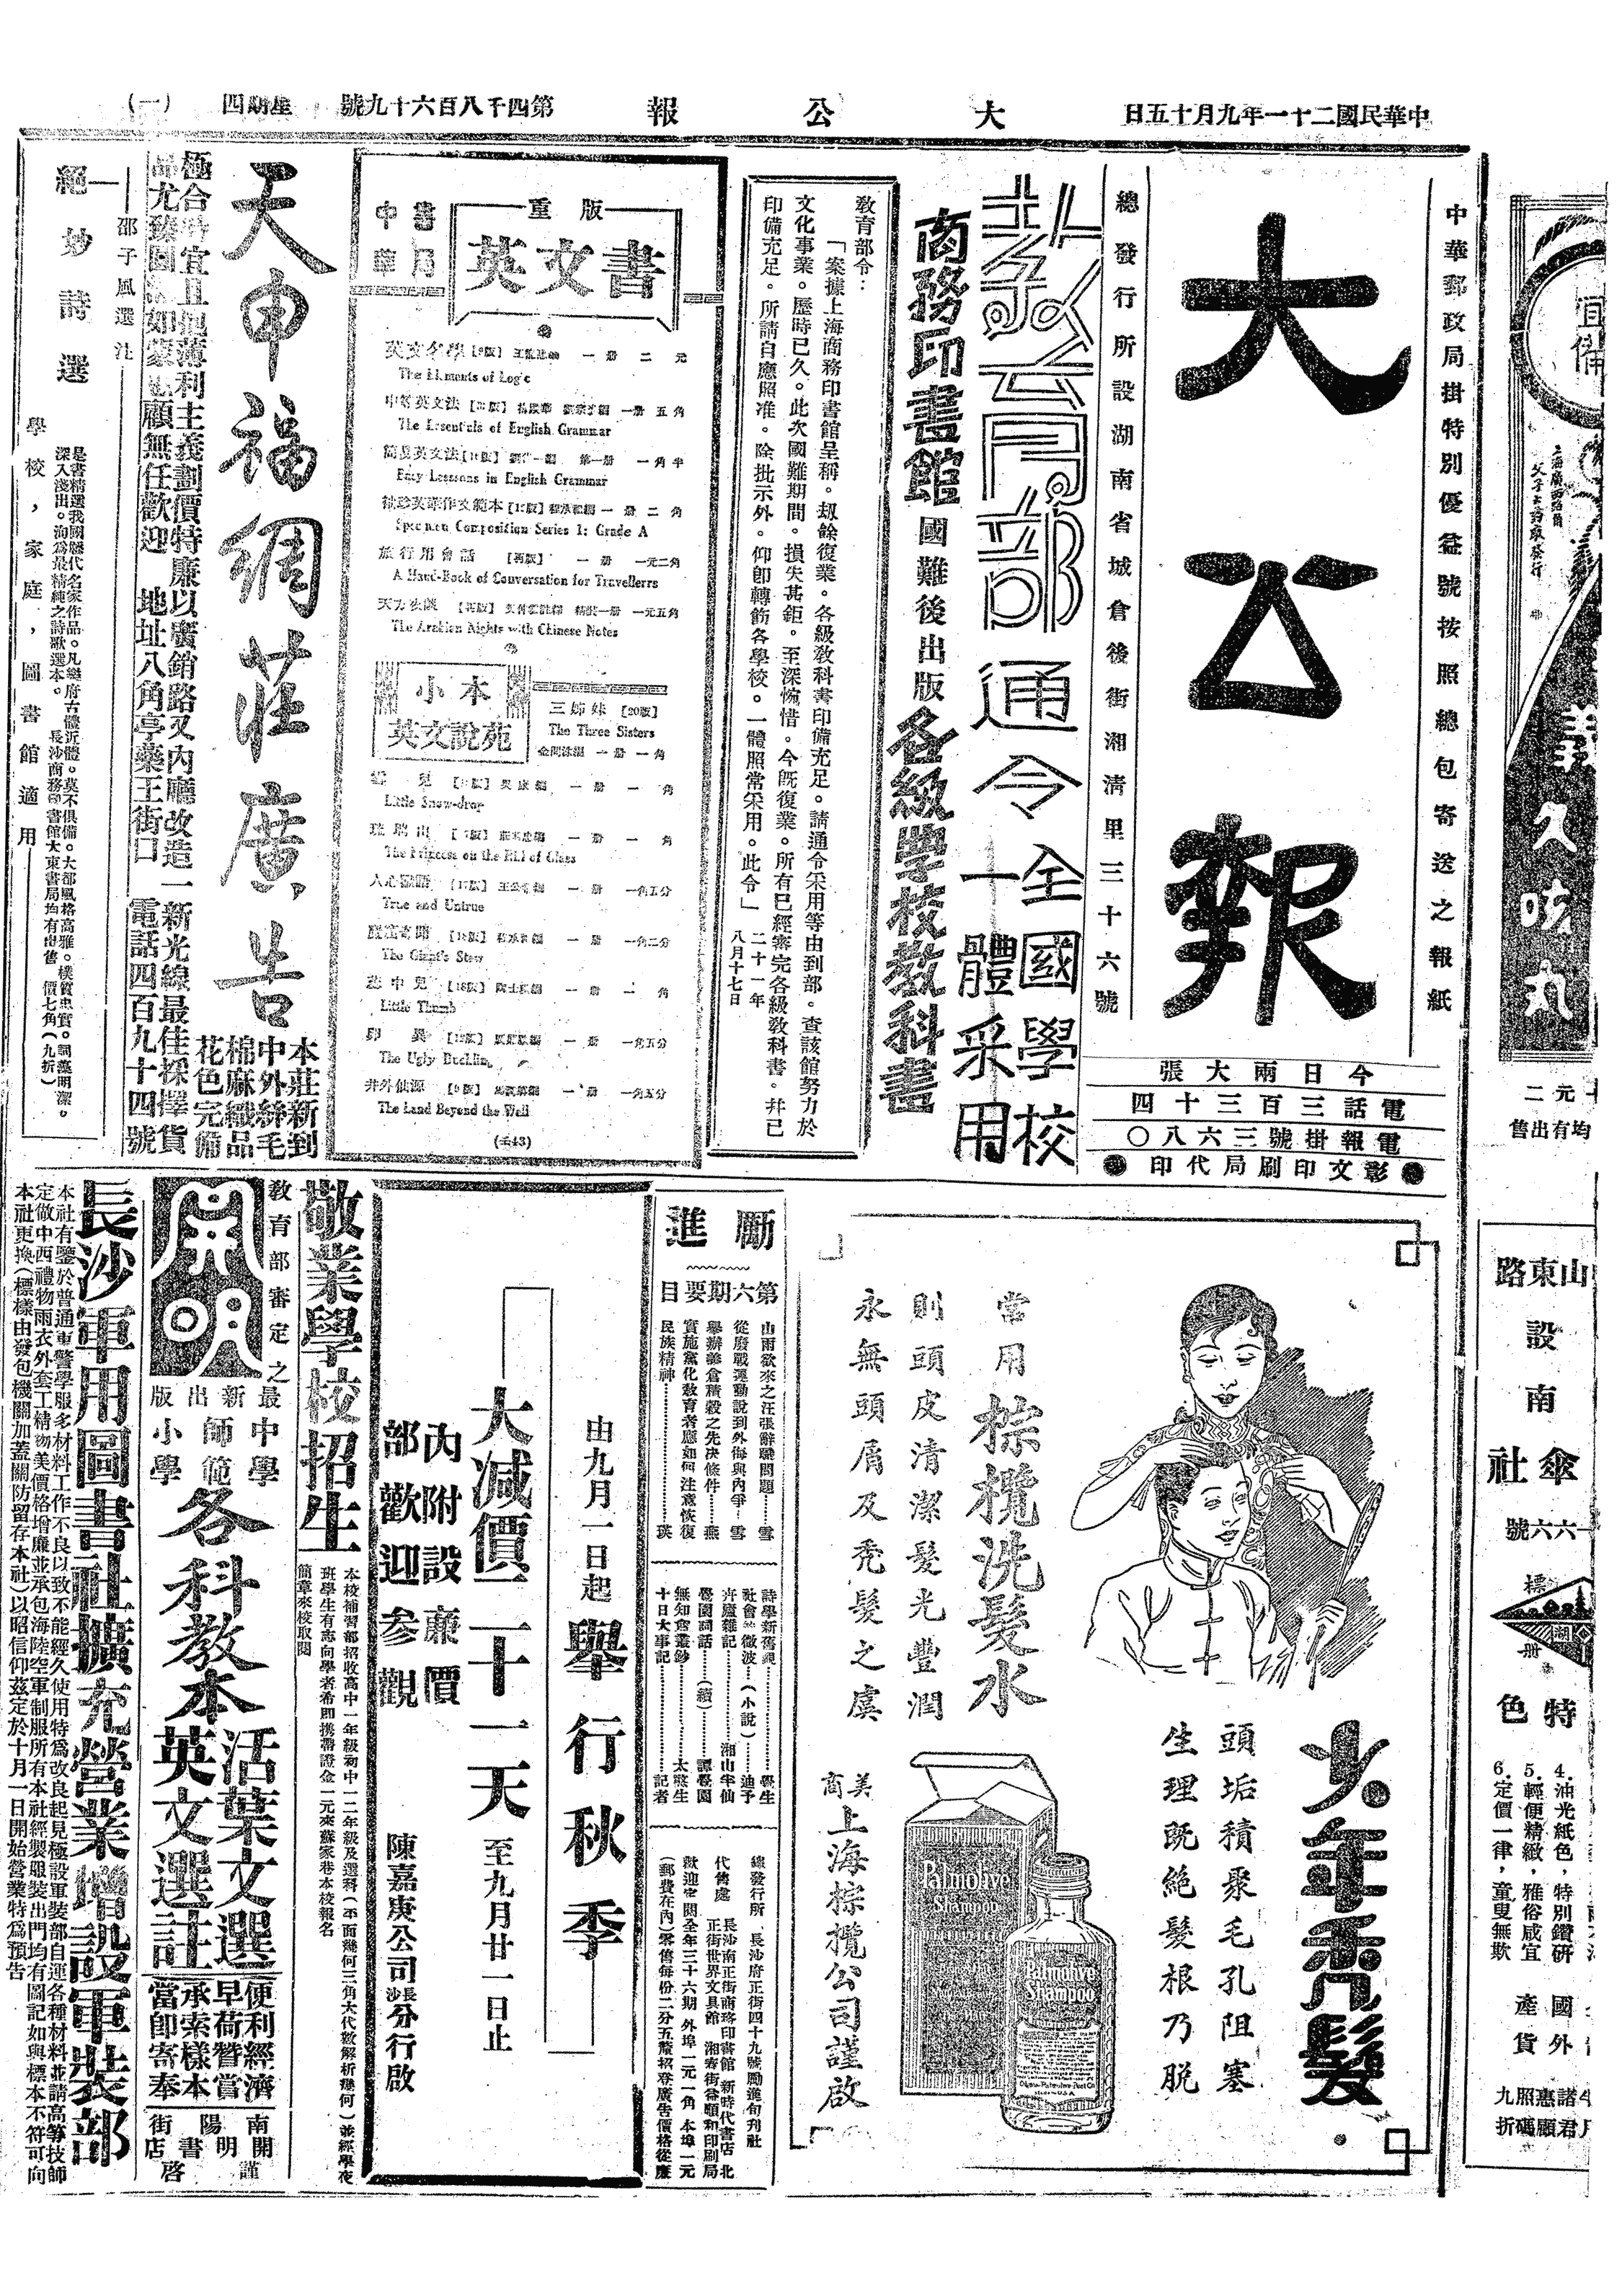 中華民國二十一年九月十五日
大公報
第四千八百六十九號
星期四
(一)
中華郵政局掛特別優益號按照總包寄送之報紙
大公報
總發行所設湖南省城倉後街湘清里三十六號
今日兩大張
電話三百三十四
電報掛號三六八〇
彰文印刷局代印
教育部通令全國學校一體采用
商務印書館國難後出版各級學校教科書
教育部令：
「案據上海商務印書館呈稱。刼餘復業。各級教科書印備充足。請通令采用等由到部。查該館努力於
文化事業。歷時已久。此次國難期間。損失甚鉅。至深惋惜。今旣復業。所有已經審完各級教科書。幷已
印備充足。所請自應照准。除批示外。仰卽轉飭各學校。一體照常采用。此令」
二十一年
八月十七日
中華書局
重版
英文書
英文名學
一册 二元
The Elements of Logic
中等英文法
一册 五角
The Essentials of English Grammar
簡易英文法
第一册 一角半
Easy Lessons in English Grammar
一册 二角
Specimen Composition Series 1: Grade A
旅行用會話 [再版] 一册 一元二角
A Hand-Book of Conversation for Travellerrs
精裝一册 一元五角
The Arabian Nights with Chinese Notes
小本
英文說苑
三姊妹 [20版]
The Three Sisters
一册 一角
一册 一角
Little Snow-drop
一册 一角
The Princess on the Hill of Glass
一册 一角五分
True and Untrue
一册 一角二分
The Giant's Stew
一册 二角
Little Thumb
一册 一角五分
The Ugly Duckling
井外仙源 [9版] 一册 一角五分
The Land Beyond the Well
天申福綢莊廣告
本莊新到
中外絲毛
棉麻織品
花色完備
極合時宜且抱薄利主義劃價特廉以廣銷路又內廳改造一新光線最佳採擇貨
顧無任歡迎 地址八角亭藥王街口 電話四百九十四號
邵子風選注
絕妙詩選
是書精選我國歷代名家作品。凡樂府古體近體。莫不俱備。大都風格高雅。樸質忠實。詞藻明潔。
深入淺出。洵爲最精純之詩歌選本。 長沙商務印書館大東書局均有出售 價七角(九折)
學校，家庭，圖書館適用
少年禿髮
頭垢積聚毛孔阻塞
生理既絕髮根乃脫
常用棕欖洗髮水
則頭皮清潔髮光豐潤
永無頭屑及禿髮之虞
Palmolive
Shampoo
Palmolive
Shampoo
美商
上海棕欖公司謹啟
勵進
第六期要目
山雨欲來之汪張辭職問題……雪
從廢戰運動說到外侮與內爭…雪
舉辦義倉積穀之先決條件……燕
實施黨化教育者應如何注意恢復
民族精神……瑛
詩學新舊觀
社會微波(小說)……迪予
卉廬雜記……湘山半仙
譽園詞話(續)……譚譽園
無知齋叢鈔……太憨生
十日大事記……記者
總發行所 長沙府正街四十九號勵進旬刊社
代售處 長沙南正街商務印書館 新時代書店 北
正街世界文具館 湘春街益順和印刷局
歡迎定閱全年三十六期 外埠一元一角 本埠一元
(郵費在內)零售每份二分五釐招登廣告價格從廉
由九月一日起舉行秋季
大減價二十一天至九月廿一日止
內附設廉價
部歡迎參觀
陳嘉庚公司長沙分行啟
敬業學校招生
本校補習部招收高中一年級初中一二年級及選科(平面幾何三角大代數解析幾何)並經學夜
班學生有志向學者希即携帶證金一元來蘇家巷本校報名
簡章來校取閱
教育部審定之
開明
最新出版
中學
師範
小學
各科教本
活葉文選
英文選註
便利經濟
早荷贊賞
承索樣本
當即寄奉
南陽街
開明書店
謹啓
長沙軍用圖書社擴充營業增設軍裝部
本社有鑒於普通軍警學服多材料工作不良以致不能經久使用特爲改良起見極設軍裝部自運各種材料並請高等技師
定做中西禮物雨衣外套工精物美價格增廉並承包海陸空軍制服所有本社經製服裝出門均有圖記如與標本不符可向
本社更換(標樣由發包機關加蓋關防留存本社)以昭信仰茲定於十月一日開始營業特爲預告
宜備
久咳丸
均有出售
山東路
設南
傘社
一六六號
標
湖
册
特色
4.油光紙色，特別鑽研
5.輕便精緻，雅俗咸宜
6.定價一律，童叟無欺
國產
外貨
諸君惠顧照碼九折